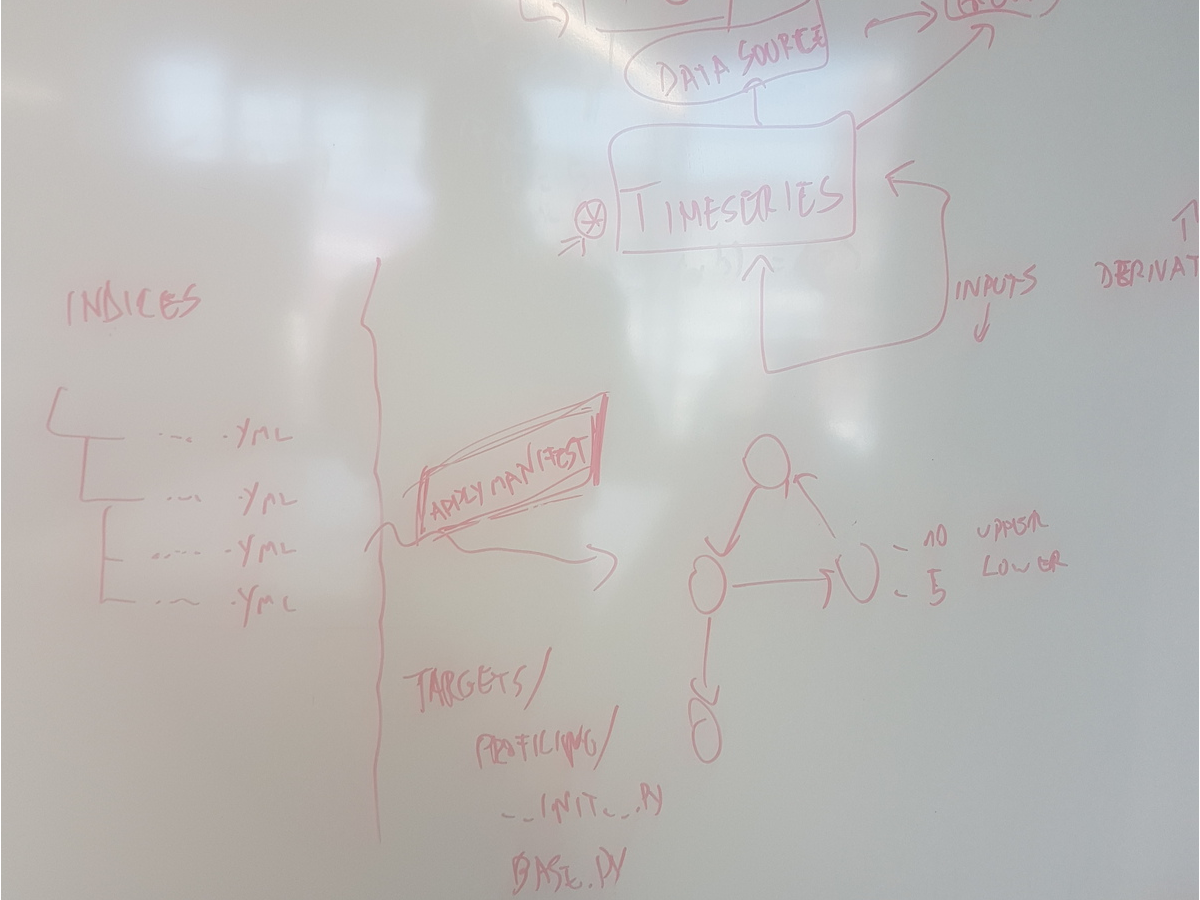 DATA SOURCE
TIMESERIES
INPUTS
DERIVAT
INDICES
.YML
.YML
.YML
.YML
APPLY MANIFEST
10 UPPER
5 LOWER
TARGETS/
PROFILING/
__INIT__.PY
BASE.PY